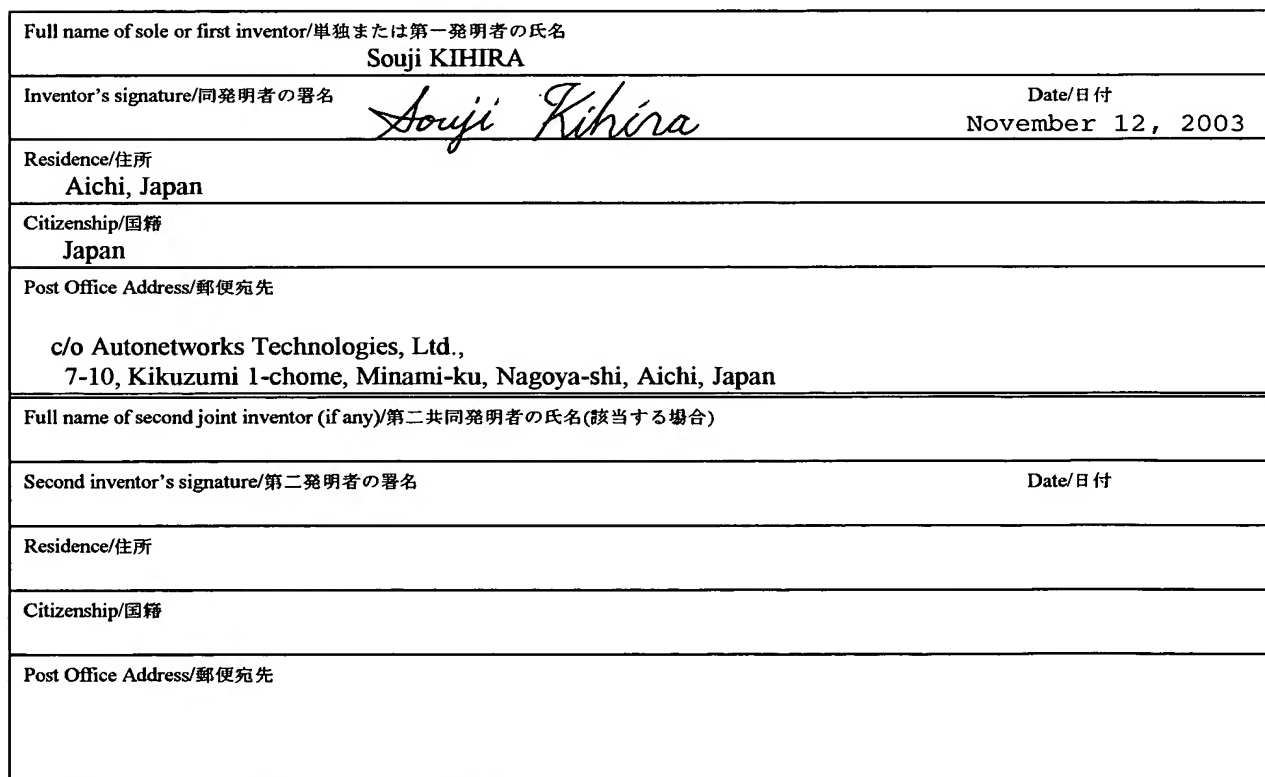 Full name of sole or first inventor/単独または第一発明者の氏名
Souji KIHIRA
Inventor's signature/同発明者の署名
Souji Kihira
Date/日付
November 12, 2003
Residence/住所
Aichi, Japan
Citizenship/国籍
Japan
Post Office Address/郵便宛先
c/o Autonetworks Technologies, Ltd.,
7-10, Kikuzumi 1-chome, Minami-ku, Nagoya-shi, Aichi, Japan
Full name of second joint inventor (if any)/第二共同発明者の氏名(該当する場合)
Second inventor's signature/第二発明者の署名
Date/日付
Residence/住所
Citizenship/国籍
Post Office Address/郵便宛先